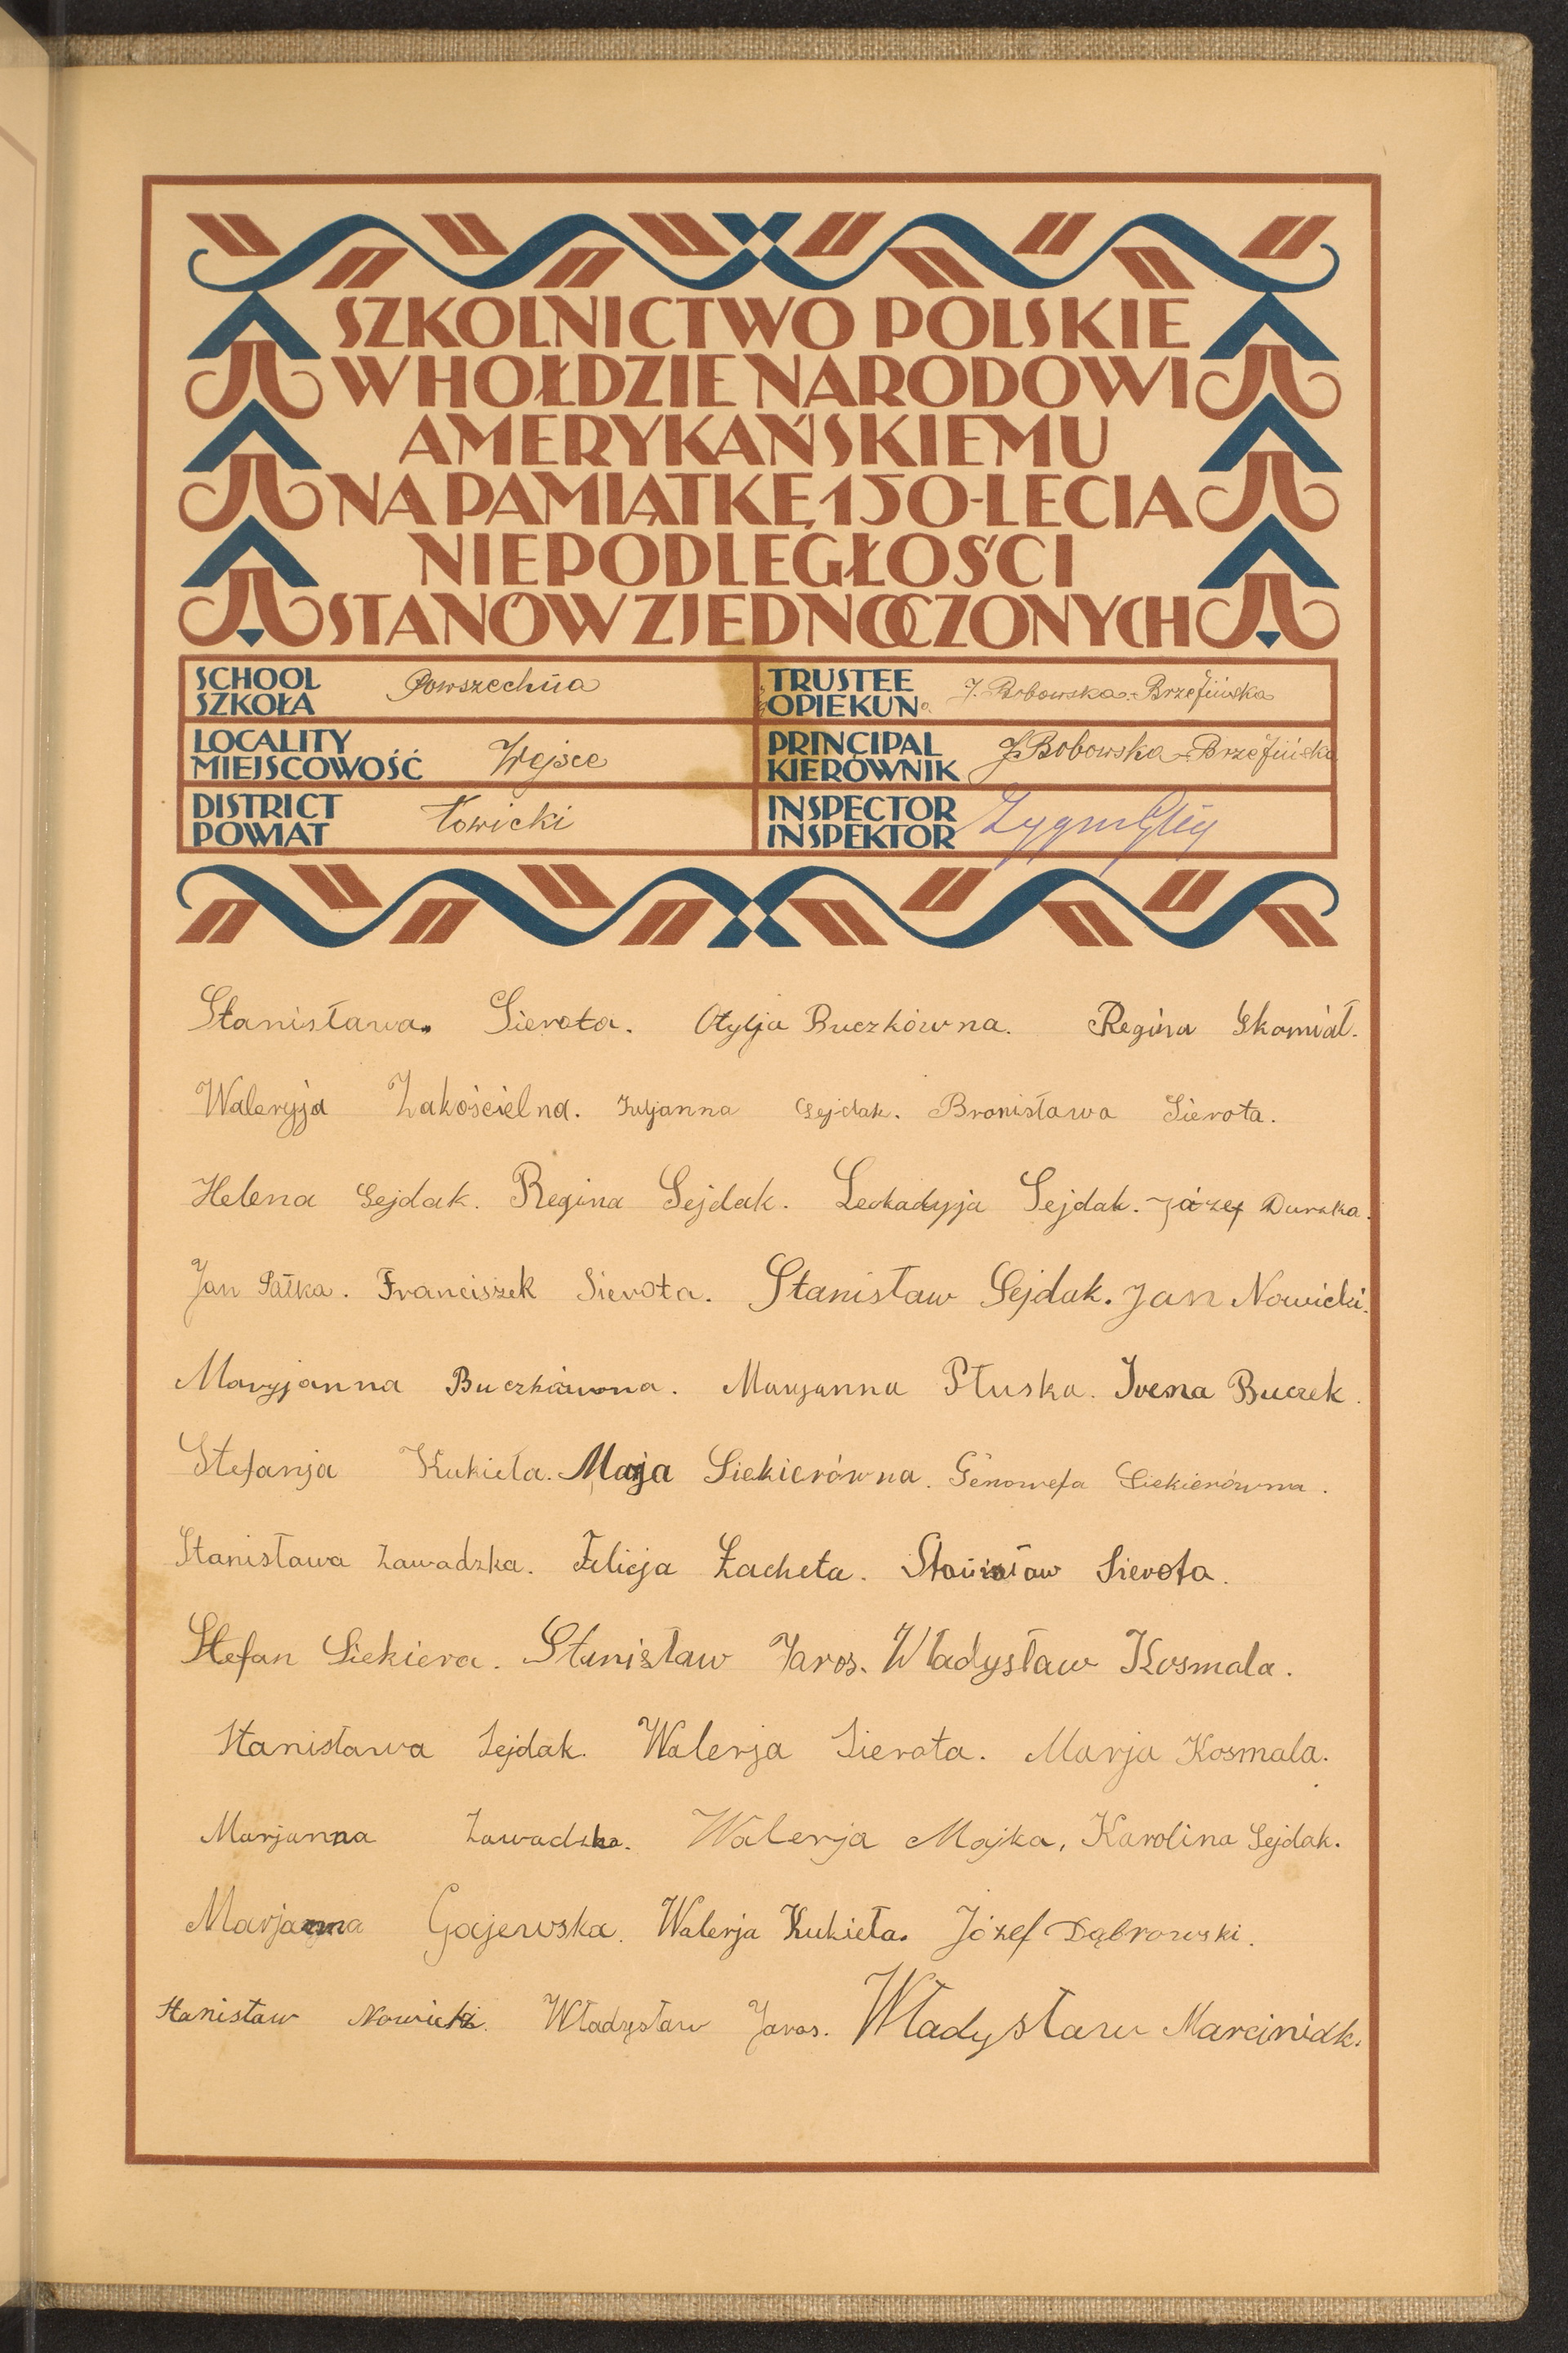 SZKOLNICTWO POLSKIE
W HOŁDZIE NARODOWI
AMERYKAŃSKIEMU
NA PAMIĄTKĘ 150-LECIA
NIEPODLEGŁOŚCI
STANÓW ZJEDNOCZONYCH
SCHOOL
SZKOŁA Powszechna
TRUSTEE
OPIEKUN J. Bobowska-Brzezińska
LOCALITY
MIEJSCOWOŚĆ Wejsce
PRINCIPAL
KIERÓWNIK J. Bobowska-Brzezińska
DISTRICT
POWIAT Łowicki
INSPECTOR
INSPEKTOR
Stanisława Sierota. Otylja Buczkówna. Regina Skomiał.
Waleryja Zakościelna. Juljanna Sejdak. Bronisława Sierota.
Helena Sejdak. Regina Sejdak. Leokadyja Sejdak. Józef Durska.
Jan Pałka. Franciszek Sierota. Stanisław Sejdak. Jan Nowicki.
Maryjanna Buczkówna. Maryanna Płuska. Irena Buczek.
Stefanja Kukieła. Marja Siekierówna. Génowefa Siekierówna.
Stanisława Zawadzka. Felicja Łacheta. Stanisław Sierota.
Stefan Siekiera. Stanisław Jaros. Władysław Kosmala.
Stanisława Sejdak. Walerja Sierota. Marja Kosmala.
Marjanna Zawadzka. Walerja Majka, Karolina Sejdak.
Marjanna Gajewska. Walerja Kukieła. Józef Dąbrowski.
Stanisław Nowicki. Władysław Jaros. Władysław Marciniak.